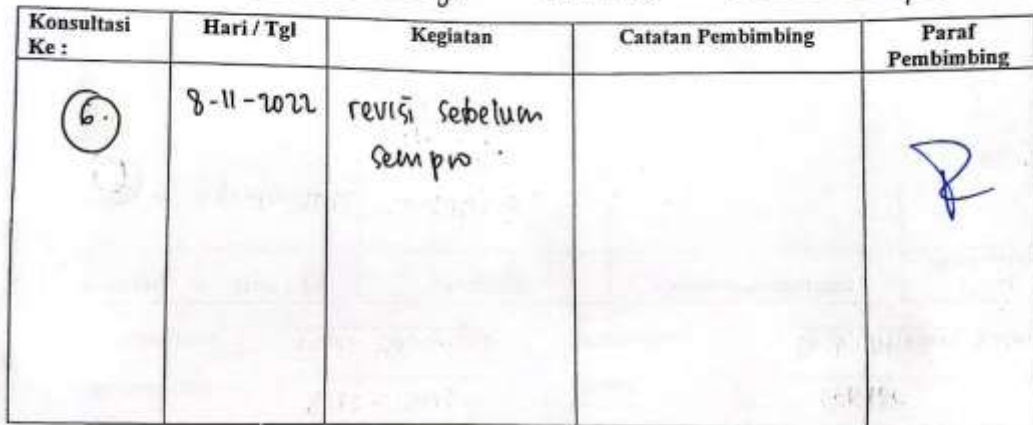 Konsultasi Ke :
Hari / Tgl
Kegiatan
Catatan Pembimbing
Paraf Pembimbing
6.
8-11-2022
revisi sebelum
sempro